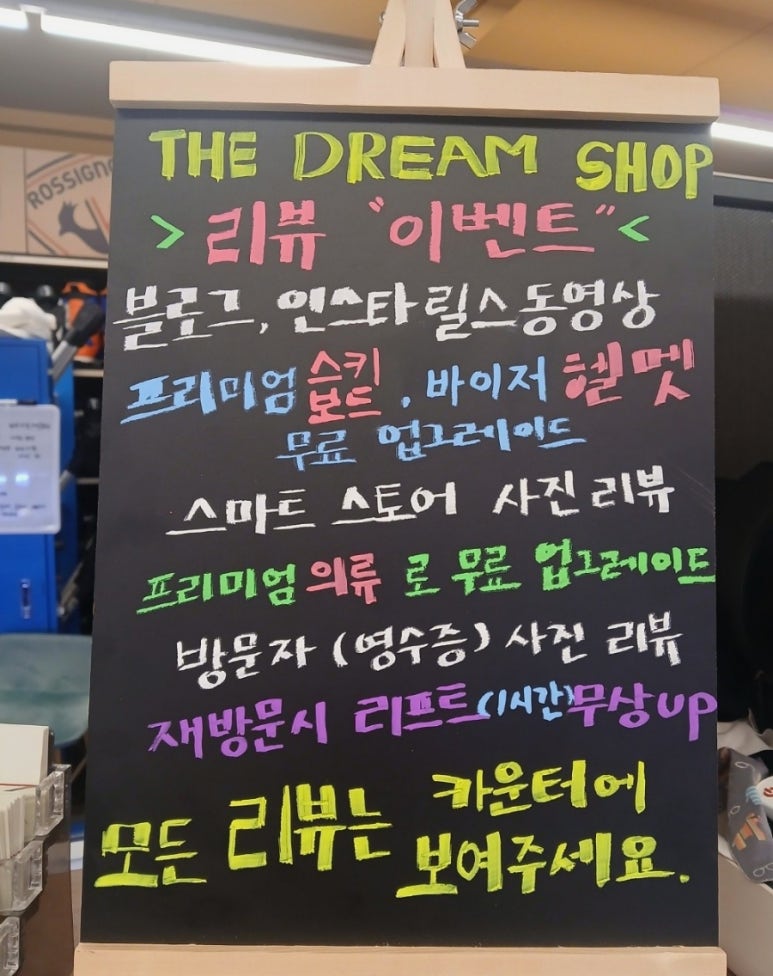 ROSSIGNO
THE DREAM SHOP
> 리뷰 "이벤트" <
블로그, 인스타 릴스 동영상
프리미엄 스키 보드, 바이저 헬멧
무료 업그레이드
스마트 스토어 사진 리뷰
프리미엄 의류 로 무료 업그레이드
방문자 (영수증) 사진 리뷰
재방문시 리프트(1시간)무상UP
모든 리뷰는 카운터에
보여주세요.